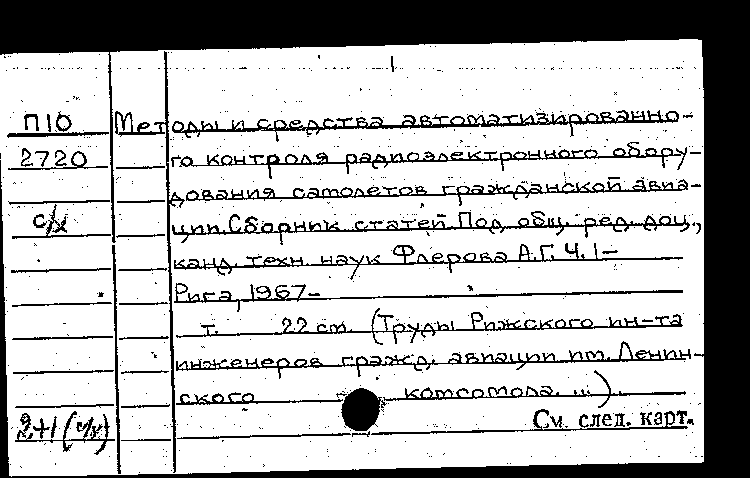 П10 Методы и средства автоматизированно-
2720 го контроля радиоэлектронного обору-
дования самолетов гражданской авиа-
с/х ции. Сборник статей. Под общ. ред. доц.,
канд. техн. наук Флерова А.Г. Ч. 1-
Рига, 1967-
т. 22 см. (Труды Рижского ин-та
инженеров гражд. авиации им. Ленин-
ского комсомола. ...).
2+1 (с/х) См. след. карт.